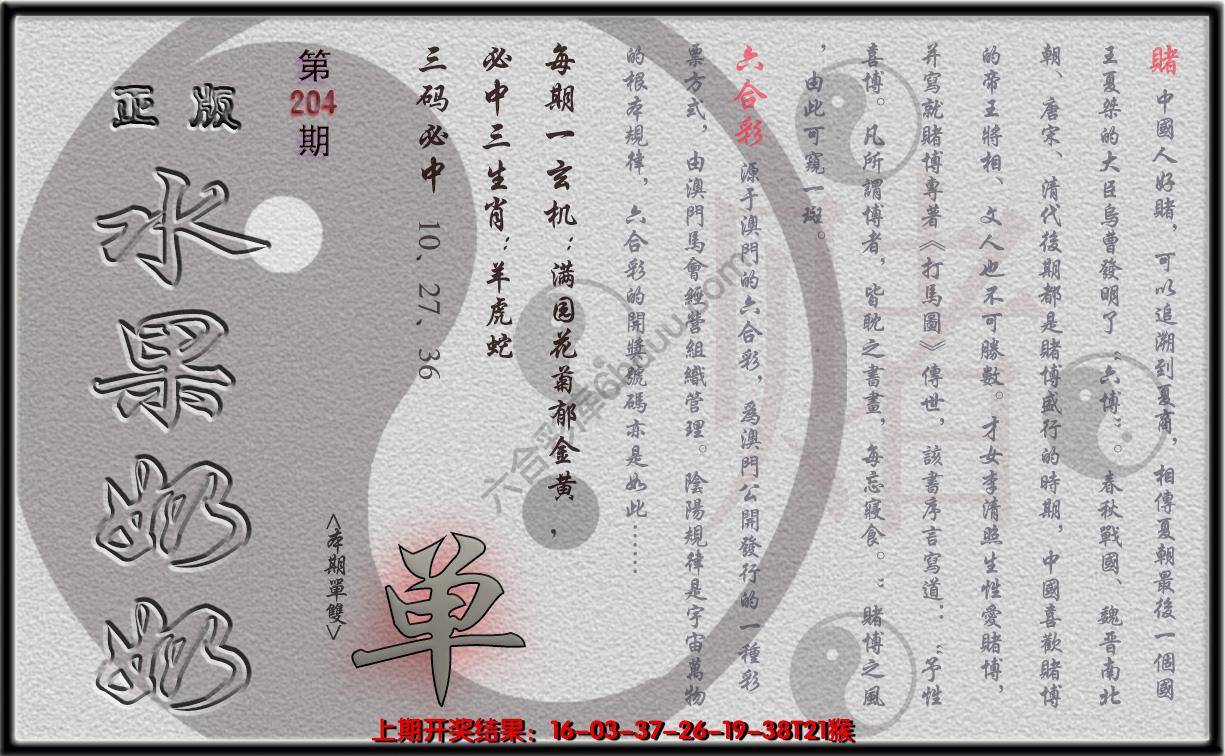 賭 中國人好賭，可以追溯到夏商，相傳夏朝最後一個國
王夏桀的大臣烏曹發明了“六博”。春秋戰國、魏晋南北
朝、唐宋、清代後期都是賭博盛行的時期，中國喜歡賭博
的帝王將相、文人也不可勝數。才女李清照生性愛賭博，
并寫就賭博專著《打馬圖》傳世，該書序言寫道：“予性
喜博。凡所謂博者，皆耽之書晝，每忘寢食。”賭博之風
，由此可窺一斑。
六合彩 源于澳門的六合彩，爲澳門公開發行的一種彩
票方式，由澳門馬會經營組織管理。陰陽規律是宇宙萬物
的根本規律，六合彩的開獎號碼亦是如此……
每期一玄机：满园花菊郁金黄，
必中三生肖：羊虎蛇
三码必中 10、27、36
第204期
正版
水果奶奶
<本期單雙>
单
六合彩库6huuu.com
賭
上期开奖结果：16-03-37-26-19-38T21猴